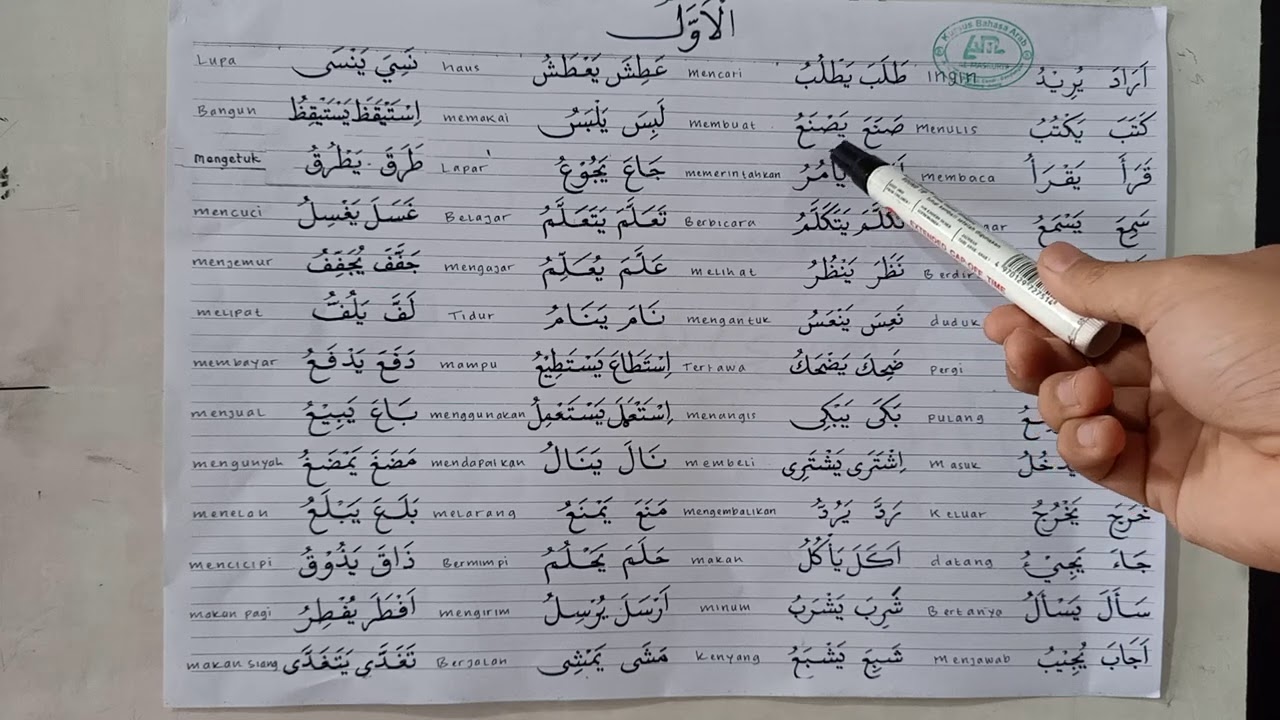 الْاَوَّلُ
Kursus Bahasa Arab
اَرَادَ يُرِيْدُ Ingin طَلَبَ يَطْلُبُ mencari عَطِشَ يَعْطَشُ haus نَسِيَ يَنْسَى Lupa
كَتَبَ يَكْتُبُ Menulis صَنَعَ يَصْنَعُ membuat لَبِسَ يَلْبَسُ memakai اِسْتَيْقَظَ يَسْتَيْقِظُ Bangun
قَرَأَ يَقْرَأُ membaca يَأْمُرُ memerintahkan جَاعَ يَجُوْعُ Lapar طَرَقَ يَطْرُقُ mengetuk
سَمِعَ يَسْمَعُ تَكَلَّمَ يَتَكَلَّمُ Berbicara تَعَلَّمَ يَتَعَلَّمُ Belajar غَسَلَ يَغْسِلُ mencuci
نَظَرَ يَنْظُرُ melihat عَلَّمَ يُعَلِّمُ mengajar جَفَّفَ يُجَفِّفُ menjemur
duduk نَعِسَ يَنْعَسُ mengantuk نَامَ يَنَامُ Tidur لَفَّ يَلُفُّ melipat
pergi ضَحِكَ يَضْحَكُ Tertawa اِسْتَطَاعَ يَسْتَطِيْعُ mampu دَفَعَ يَدْفَعُ membayar
pulang بَكَى يَبْكِى menangis اِسْتَعْمَلَ يَسْتَعْمِلُ menggunakan بَاعَ يَبِيْعُ menjual
masuk اِشْتَرَى يَشْتَرِى membeli نَالَ يَنَالُ mendapatkan مَضَغَ يَمْضَغُ mengunyah
خَرَجَ يَخْرُجُ Keluar رَدَّ يَرُدُّ mengembalikan مَنَعَ يَمْنَعُ melarang بَلَعَ يَبْلَعُ menelan
جَاءَ يَجِيْئُ datang اَكَلَ يَأْكُلُ makan حَلَمَ يَحْلُمُ Bermimpi ذَاقَ يَذُوْقُ mencicipi
سَأَلَ يَسْأَلُ Bertanya شَرِبَ يَشْرَبُ minum اَرْسَلَ يُرْسِلُ mengirim اَفْطَرَ يُفْطِرُ makan pagi
اَجَابَ يُجِيْبُ Menjawab شَبِعَ يَشْبَعُ Kenyang مَشَى يَمْشِى Berjalan تَغَدَّى يَتَغَدَّى makan siang
EXTENDED CAP-OFF TIME